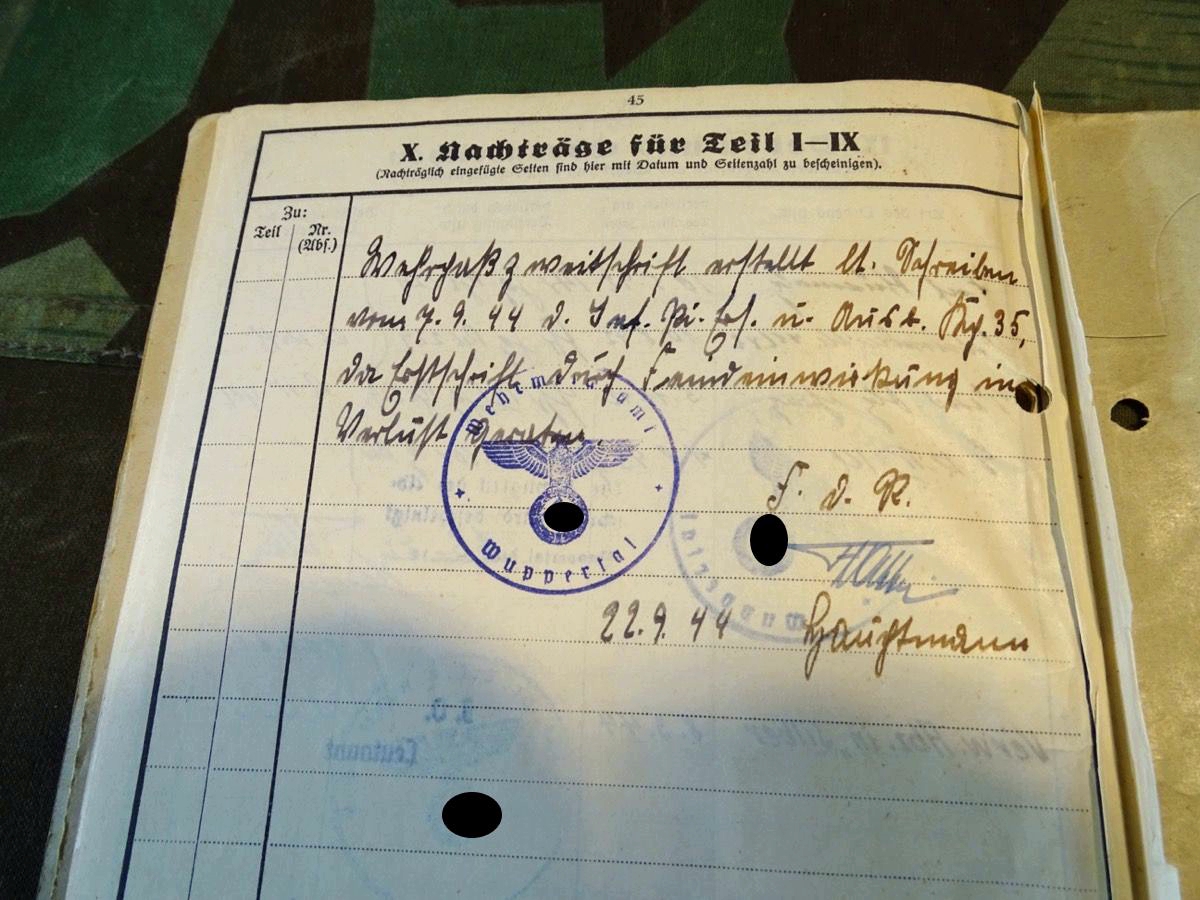 45
X. Nachträge für Teil I—IX
(Nachträglich eingefügte Seiten sind hier mit Datum und Seitenzahl zu bescheinigen).
Zu:
Teil
Nr.
(Abs.)
Wehrpaßzweitschrift erstellt lt. Schreiben
vom 7. 9. 44 d. Inf. Pi. Ers. u. Ausb. Kp. 35,
da Erstschrift durch Feindeinwirkung in
Verlust geraten.
Wehrmeldeamt
Wuppertal
F. d. R.
22. 9. 44 Hauptmann
Leutnant